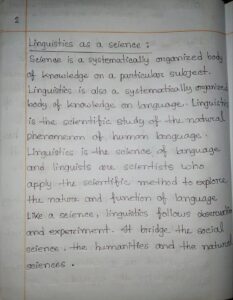 1
Linguistics as a science :
Science is a systematically organized body
of knowledge on a particular subject.
Linguistics is also a systematically organized
body of knowledge on language. Linguistics
is the scientific study of the natural
phenomenon of human language.
Linguistics is the science of language
and linguists are scientists who
apply the scientific method to explore
the nature and function of language
Like a science, linguistics follows observation
and experiment. It bridge the social
science, the humanities and the natural
sciences.